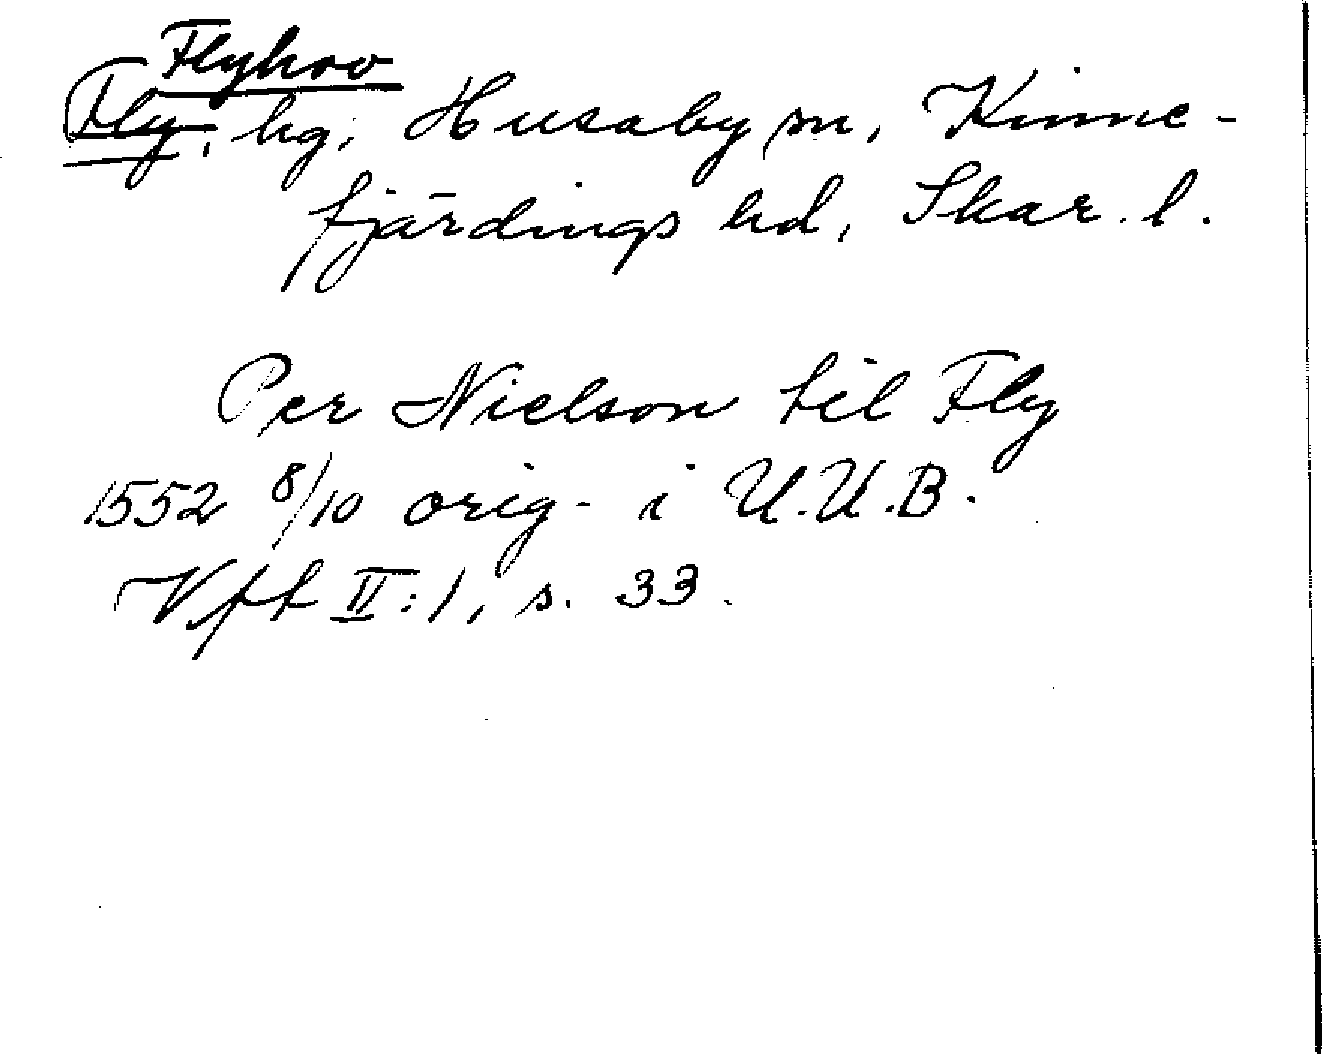 Flyhov
Fly, hg, Husaby sn, Kinne-
fjärdings hd, Skar. l.
Per Nielson til Fly
1552 8/10 orig. i U.U.B.
Vft II:1, s. 33.